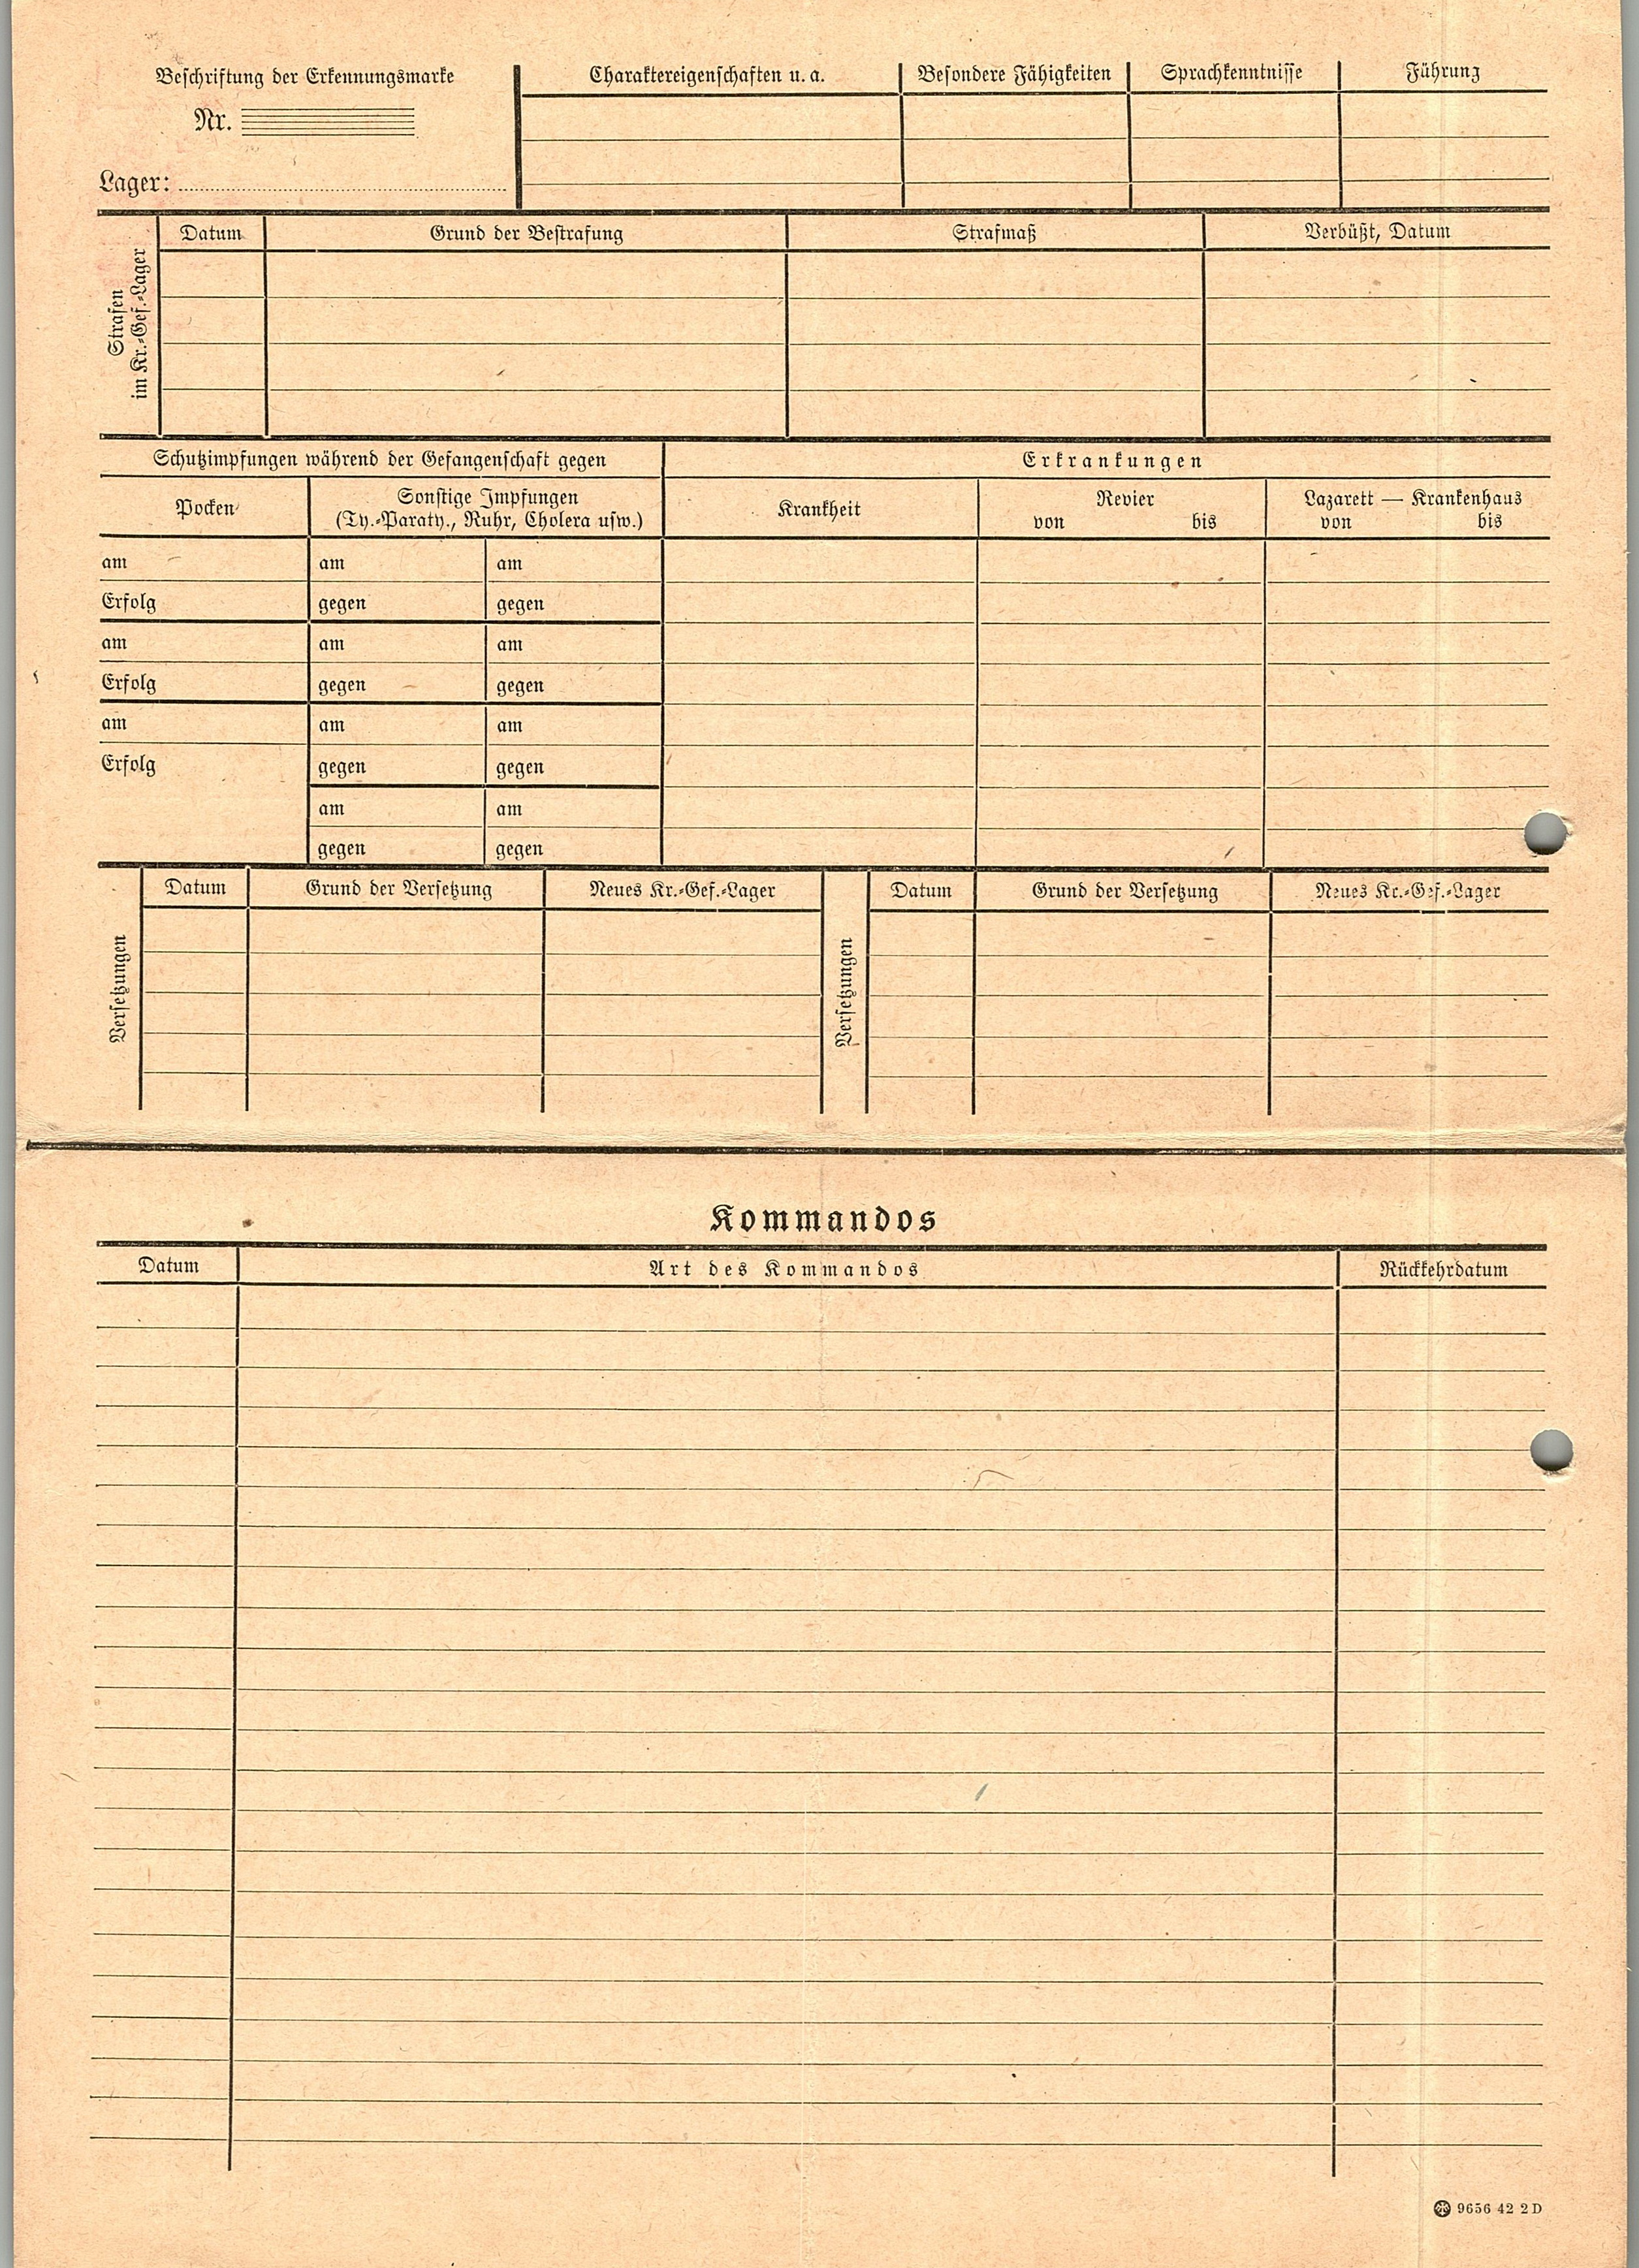 Beschriftung der Erkennungsmarke
Nr.
Lager:
Charaktereigenschaften u. a. Besondere Fähigkeiten Sprachkenntnisse Führung
Strafen
im Kr.-Gef.-Lager
Datum Grund der Bestrafung Strafmaß Verbüßt, Datum
Schutzimpfungen während der Gefangenschaft gegen
Pocken
Sonstige Impfungen
(Ty.-Paraty., Ruhr, Cholera usw.)
am am am
Erfolg gegen gegen
am am am
Erfolg gegen gegen
am am am
Erfolg gegen gegen
am am
gegen gegen
Erkrankungen
Krankheit
Revier
von bis
Lazarett — Krankenhaus
von bis
Versetzungen
Datum Grund der Versetzung Neues Kr.-Gef.-Lager
Versetzungen
Datum Grund der Versetzung Neues Kr.-Gef.-Lager
Kommandos
Datum Art des Kommandos Rückkehrdatum
9656 42 2 D